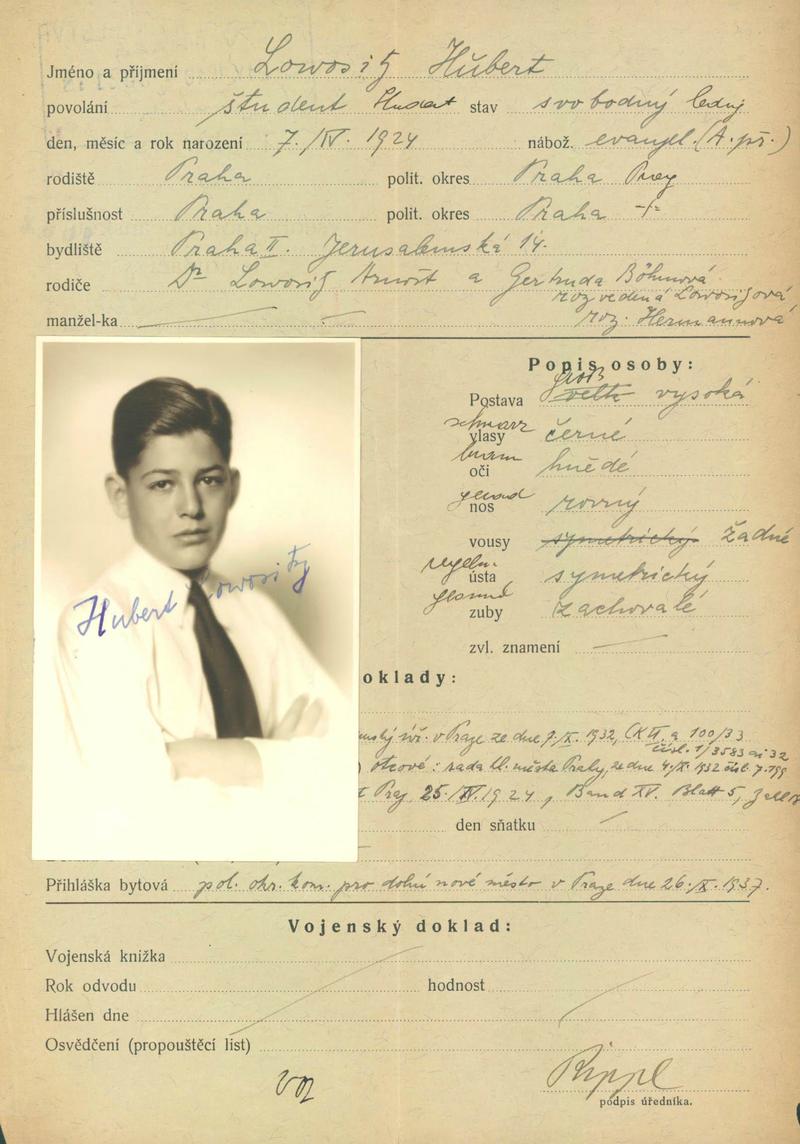 Jméno a příjmení Lowositz Hubert
povolání študent Student stav svobodný ledig
den, měsíc a rok narození 7./IV. 1924 nábož. evangel. (A. př.)
rodiště Praha polit. okres Praha Prag
příslušnost Praha polit. okres Praha -"-
bydliště Praha II. Jerusalemská 14.
rodiče Dr Lowositz Arnošt a Gertruda Böhmová
rozvedená Lowositzová
manžel-ka roz. Hermannová
Popis osoby:
groß
Postava vysoká
schwarz
vlasy černé
braun
oči hnědé
gerad
nos rovný
vousy symetrický žádné
regelm.
ústa symetrický
gesund
zuby zachovalé
zvl. znamení
Hubert Lowositz
oklady:
v Praze ze dne 7./X. 1932, 100/33
čísl. 1/3583 ai 32
otcově: rada hl. města Prahy, ze dne 4./X. 1932 čísl. 7.199
Prag 25./IV. 1924, Band XV. Blatt 5,
den sňatku
Přihláška bytová pol. okr. kom. pro dolní nové město v Praze dne 26./X. 1937.
Vojenský doklad:
Vojenská knižka
Rok odvodu hodnost
Hlášen dne
Osvědčení (propouštěcí list)
Rippl
podpis úředníka.